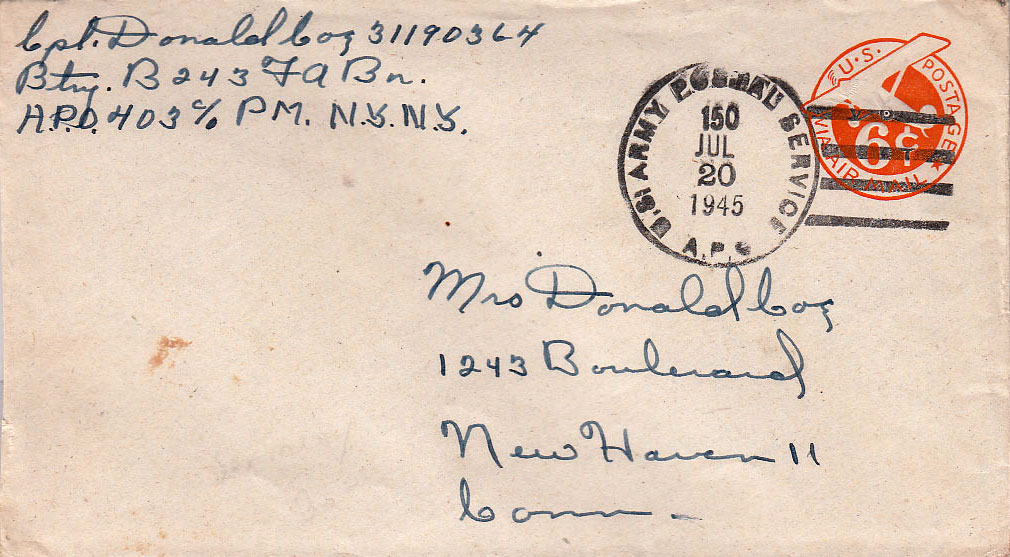 Cpl. Donald Cox 31190364
Btry. B 243 FA Bn.
A.P.O. 403 c/o PM. N.Y. N.Y.
U.S. ARMY POSTAL SERVICE
150
JUL
20
1945
A.P.O.
U.S. POSTAGE
6¢
VIA AIR MAIL
Mrs Donald Cox
1243 Boulevard
New Haven 11
Conn.